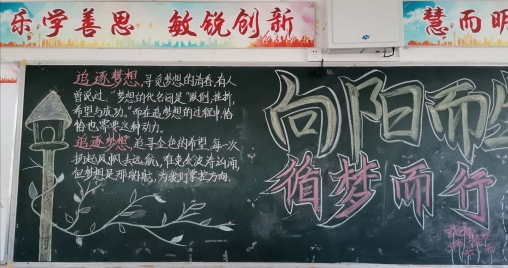 乐学善思 敏锐创新
慧而明
追逐梦想,寻觅梦想的清香,有人
曾说过:"梦想的代名词是"跌倒,挫折,
希望与成功,"而在追梦想的过程中,恰
恰也需要这种动力。
追逐梦想,追寻金色的希望,每一次
扬起风帆去远航,难免会波涛汹涌,
但梦想是那的舵,为我们掌控方向。
向阳而生
循梦而行